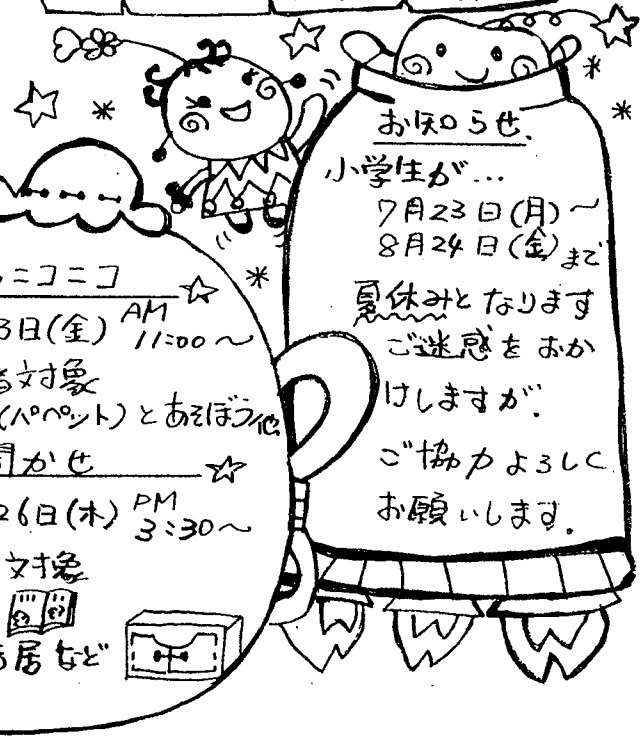 ニコニコ
3日(金) AM 11:00〜
対象
(パペット)とあそぼう他
かせ
26日(木) PM 3:30〜
対象
居など
お知らせ.
小学生が...
7月23日(月)〜
8月24日(金)まで
夏休みとなります
ご迷惑をおか
けしますが.
ご協力よろしく
お願いします.